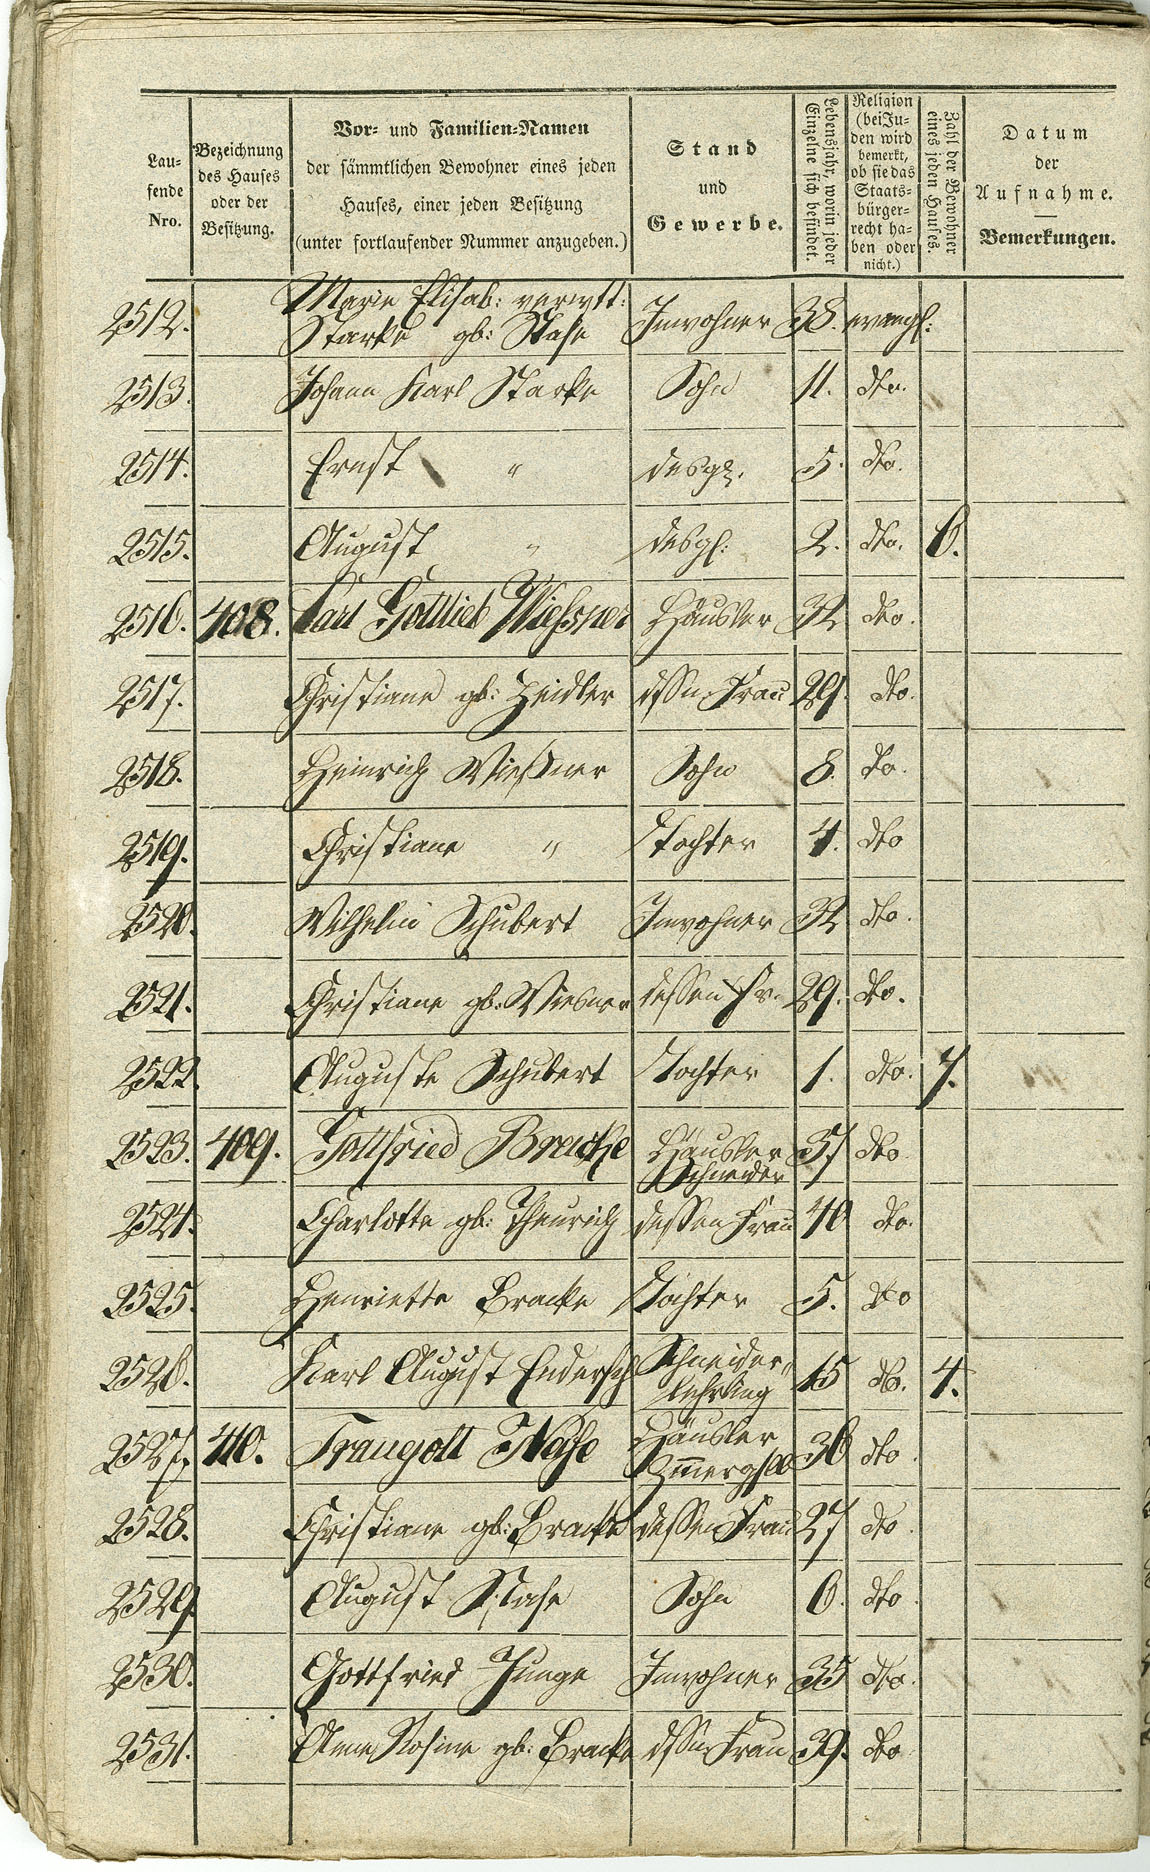 Lau-
fende
Nro.
Bezeichnung
des Hauses
oder der
Besitzung.
Vor- und Familien-Namen
der sämmtlichen Bewohner eines jeden
Hauses, einer jeden Besitzung
(unter fortlaufender Nummer anzugeben.)
Stand
und
Gewerbe.
Lebensjahr, worin jeder
Einzelne sich befindet.
Religion
(bei Ju-
den wird
bemerkt,
ob sie das
Staats-
bürger-
recht ha-
ben oder
nicht.)
Zahl der Bewohner
eines jeden Hauses.
Datum
der
Aufnahme.
Bemerkungen.
Marie Elisab: verwtt:
2512. Starke gb: Nase Inwohner 38. evangl:
2513. Johann Karl Starke Sohn 11. dto.
2514. Ernst " desgl. 5. dto.
2515. August " desgl: 2. dto. 6.
2516. 408. Karl Gottlieb Wießner Häusler 32 dto.
2517. Christiane gb: Heidler dssn Frau 29. dto.
2518. Heinrich Wießner Sohn 8. dto.
2519. Christiane " Tochter 4. dto
2520. Wilhelm Schubert Inwohner 32 dto.
2521. Christiane gb: Wiesner dessen Fr. 29. dto.
2522. Auguste Schubert Tochter 1. dto. 7.
2523. 409. Gottfried Bracke Häusler 37 dto
Schneider
2524. Charlotte gb: Theurich dessen Frau 40 dto.
2525. Henriette Bracke Tochter 5. dto
2526. Karl August Endersch Schneider- 15 dto. 4.
lehrling
2527. 410. Traugott Nase Häusler 36 dto.
Zimergsll
2528. Christiane gb: Bracke dessen Frau 27 dto.
2529. August Nase Sohn 6. dto.
2530. Gottfried Junge Inwohner 35 dto.
2531. Anne Rosine gb: Bracke dssn Frau 39. dto.